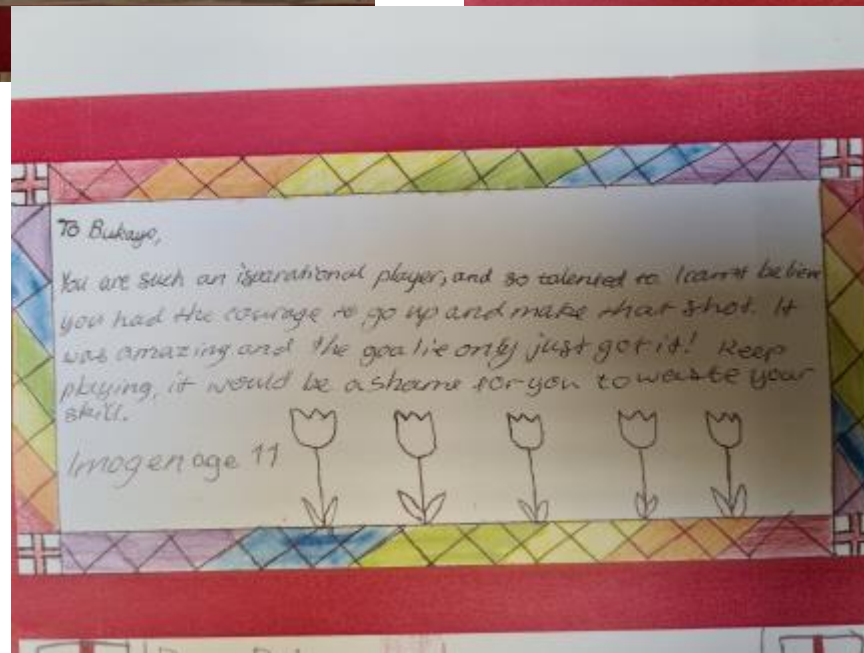 To Bukayo,
You are such an isparational player, and so talented to I cannot believe
you had the courage to go up and make that shot. It
was amazing and the goalie only just got it! Keep
playing, it would be a shame for you to waste your
skill.
Imogen age 11